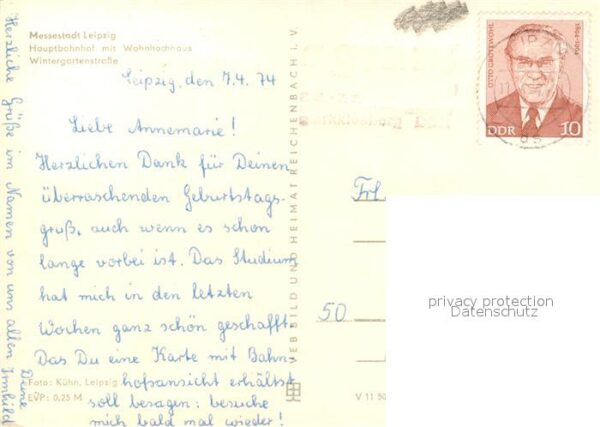 Messestadt Leipzig
Hauptbahnhof mit Wohnhochhaus
Wintergartenstraße
Leipzig, den 7.4.74
Liebe Annemarie!
Herzlichen Dank für Deinen
überraschenden Geburtstags-
gruß, auch wenn es schon
lange vorbei ist. Das Studium
hat mich in den letzten
Wochen ganz schön geschafft.
Das Du eine Karte mit Bahn-
hofsansicht erhältst
soll besagen: besuche
mich bald mal wieder!
Herzliche Grüße im Namen von uns allen
Deine
Irmhild
Foto: Kühn, Leipzig
EVP: 0,25 M
VEB BILD UND HEIMAT REICHENBACH I. V.
V 11 50
Frl.
50
OTTO GROTEWOHL
1894-1964
DDR 10
privacy protection
Datenschutz